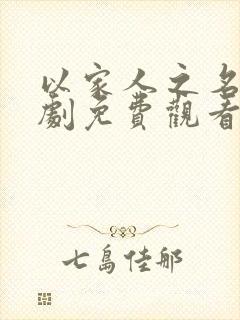 以家人之名
劇免費觀看
七島佳那